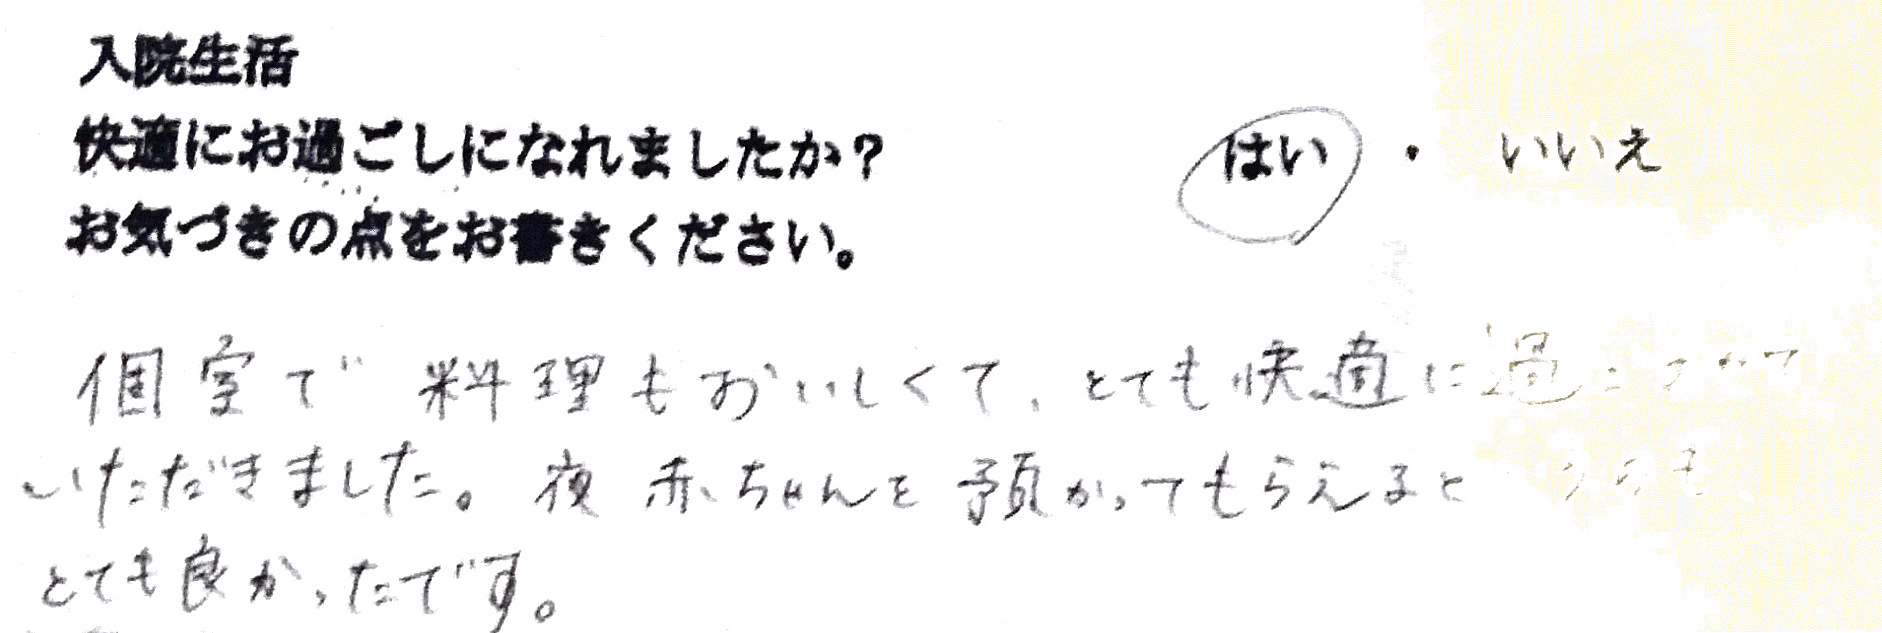 入院生活
快適にお過ごしになれましたか？ はい ・ いいえ
お気づきの点をお書きください。
個室で料理もおいしくて、とても快適に過ごさせて
いただきました。夜赤ちゃんを預かってもらえると
とても良かったです。